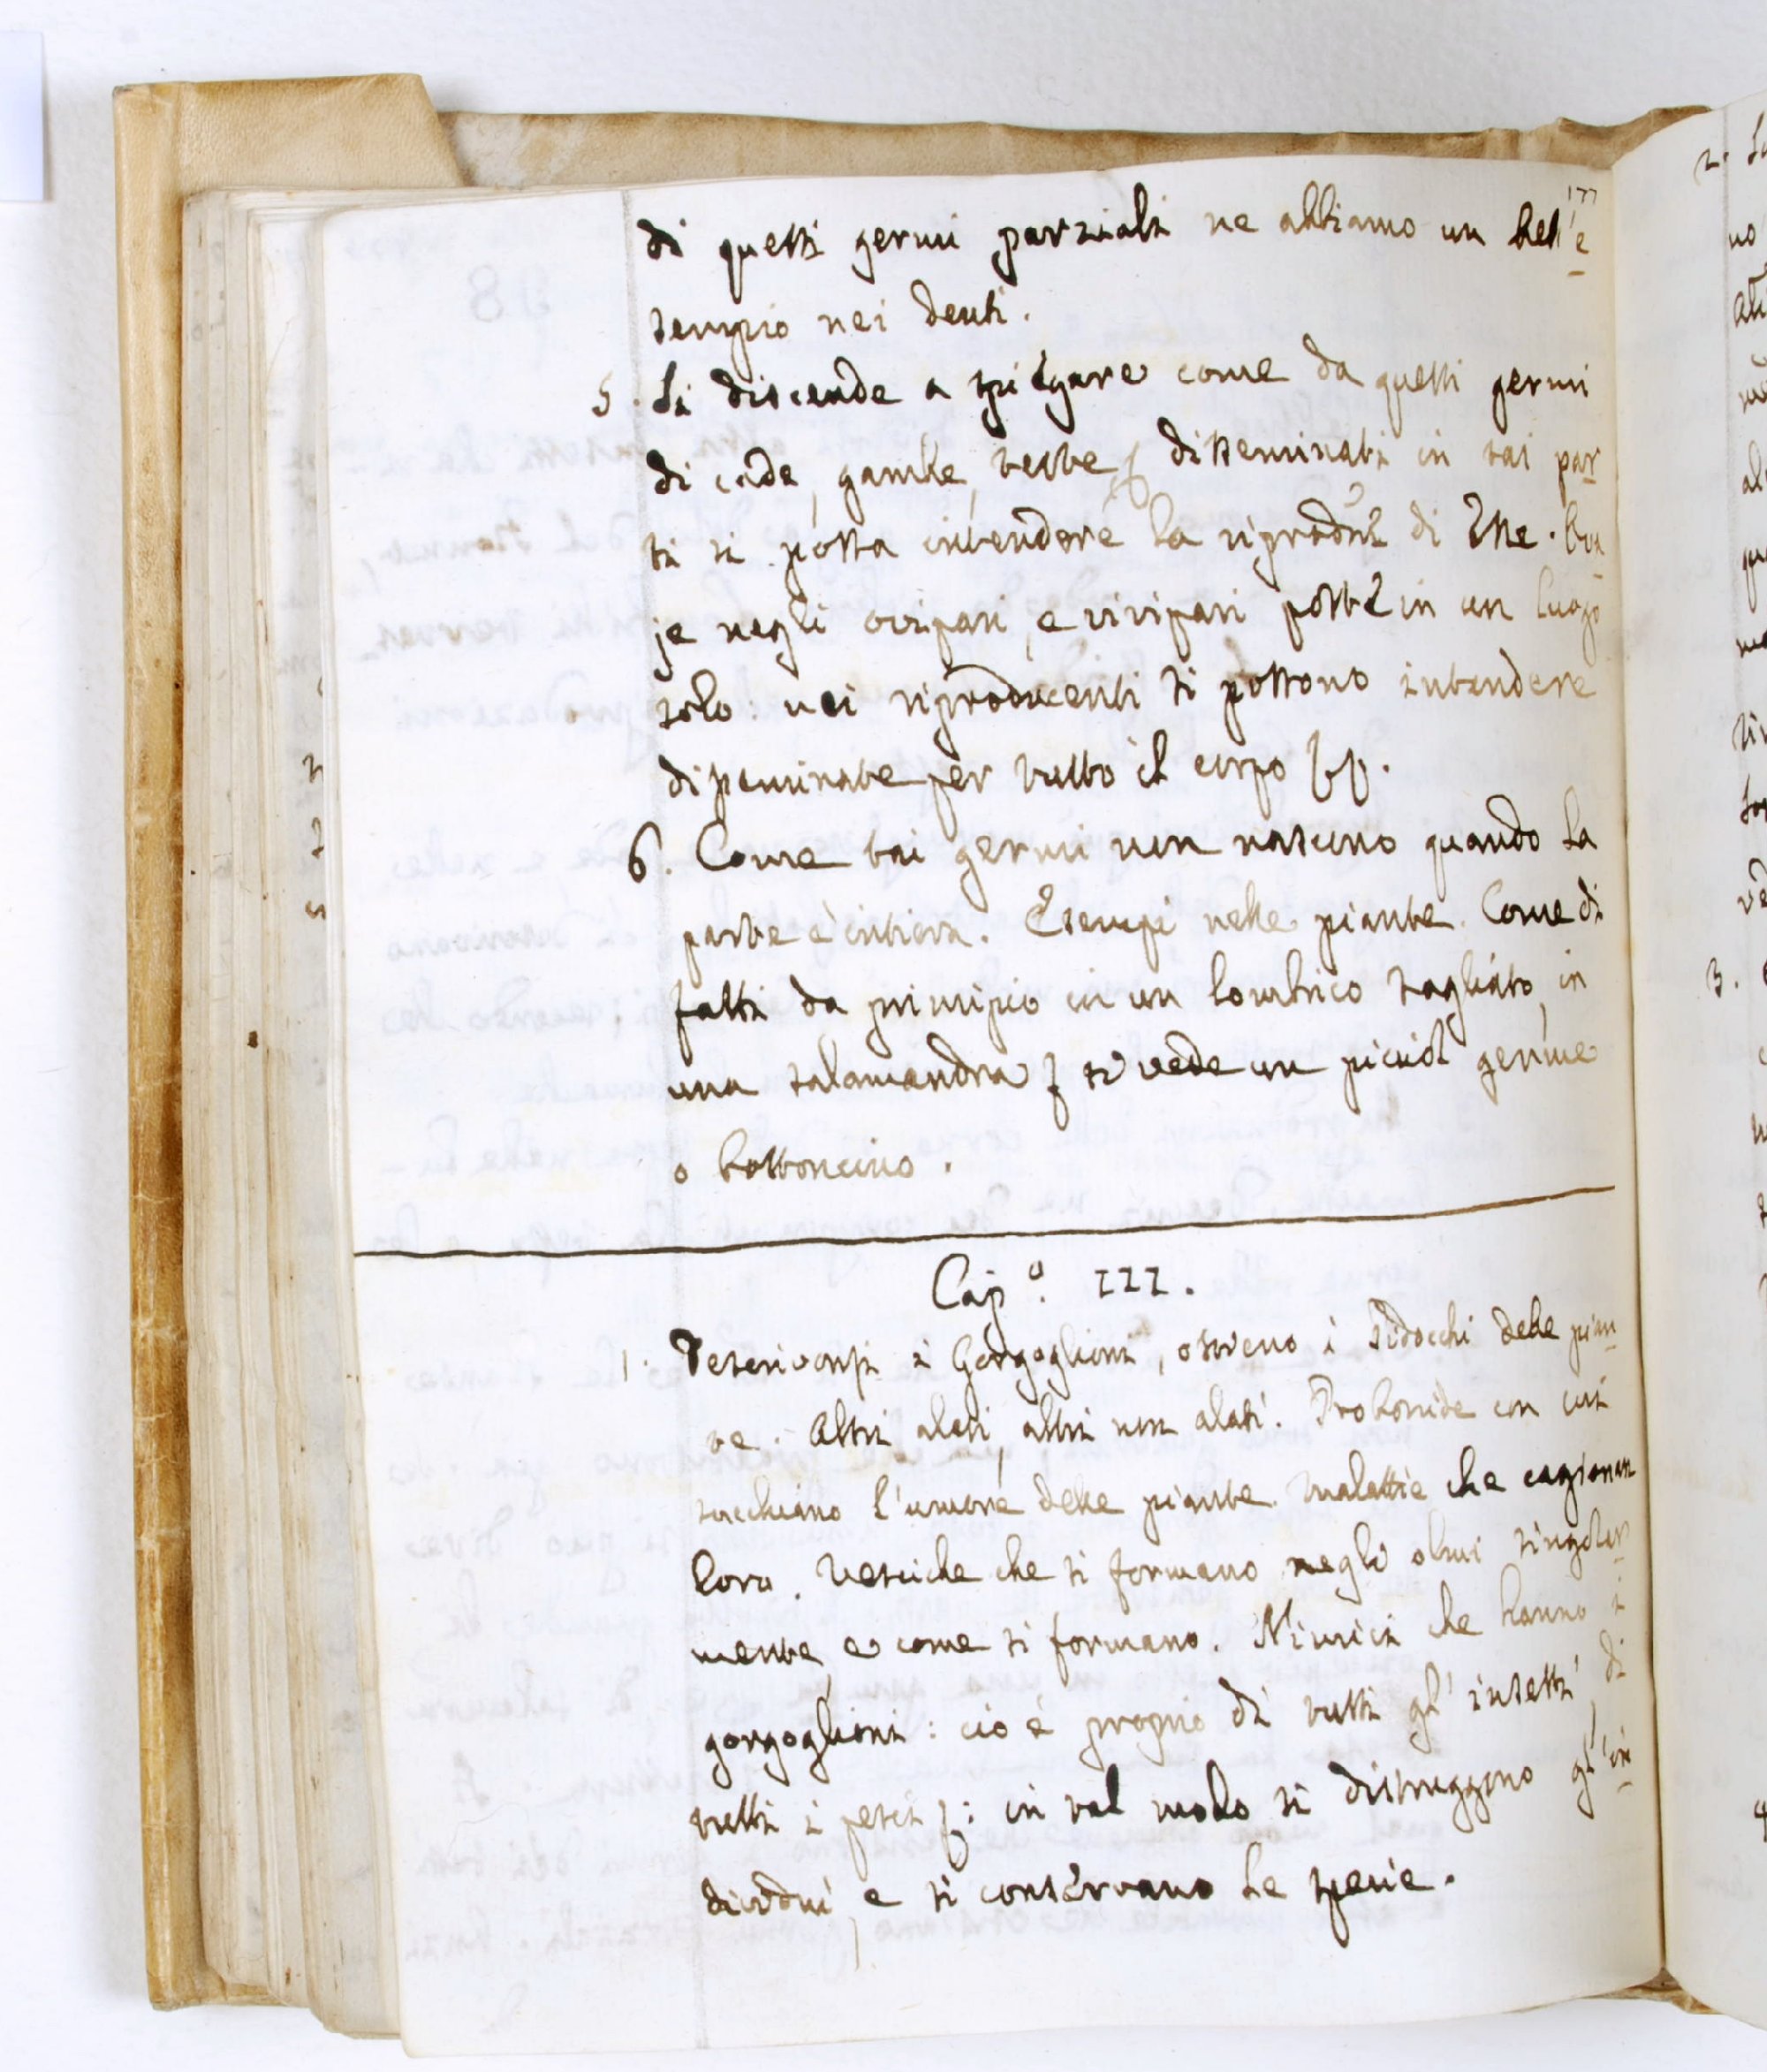 177
di questi germi parziali ne abbiamo un bell'e
sempio nei denti.
5. Si discende a spiegare come da questi germi
di code, gambe, teste disseminati in tai par
ti si possa intendere la riproduz di Esse.
je negli ovipari, e vivipari poste in un luogo
solo: nei riproducenti si possono intendere
disseminate per tutto il corpo
6. Come tai germi non nascono quando la
parte è intiera. Esempi nelle piante. Come di
fatti da principio in un lombrico tagliato, in
una salamandra si vede un picciol germe
o bottoncino.
Cap.o III.
1. Descrivonsi i Gorgoglioni, ossieno i Pidocchi delle pian
te. Altri alati, altri non alati. Proboscide con cui
succhiano l'umore delle piante. Malattie che cagionan
loro. Vesciche che si formano negli olmi singolar
mente, e come si formano. Nimici che hanno i
gorgoglioni: ciò è proprio di tutti gl'insetti, di
tutti i pesci: in tal modo si distruggono gl'in
dividui, e si conservano le spezie.